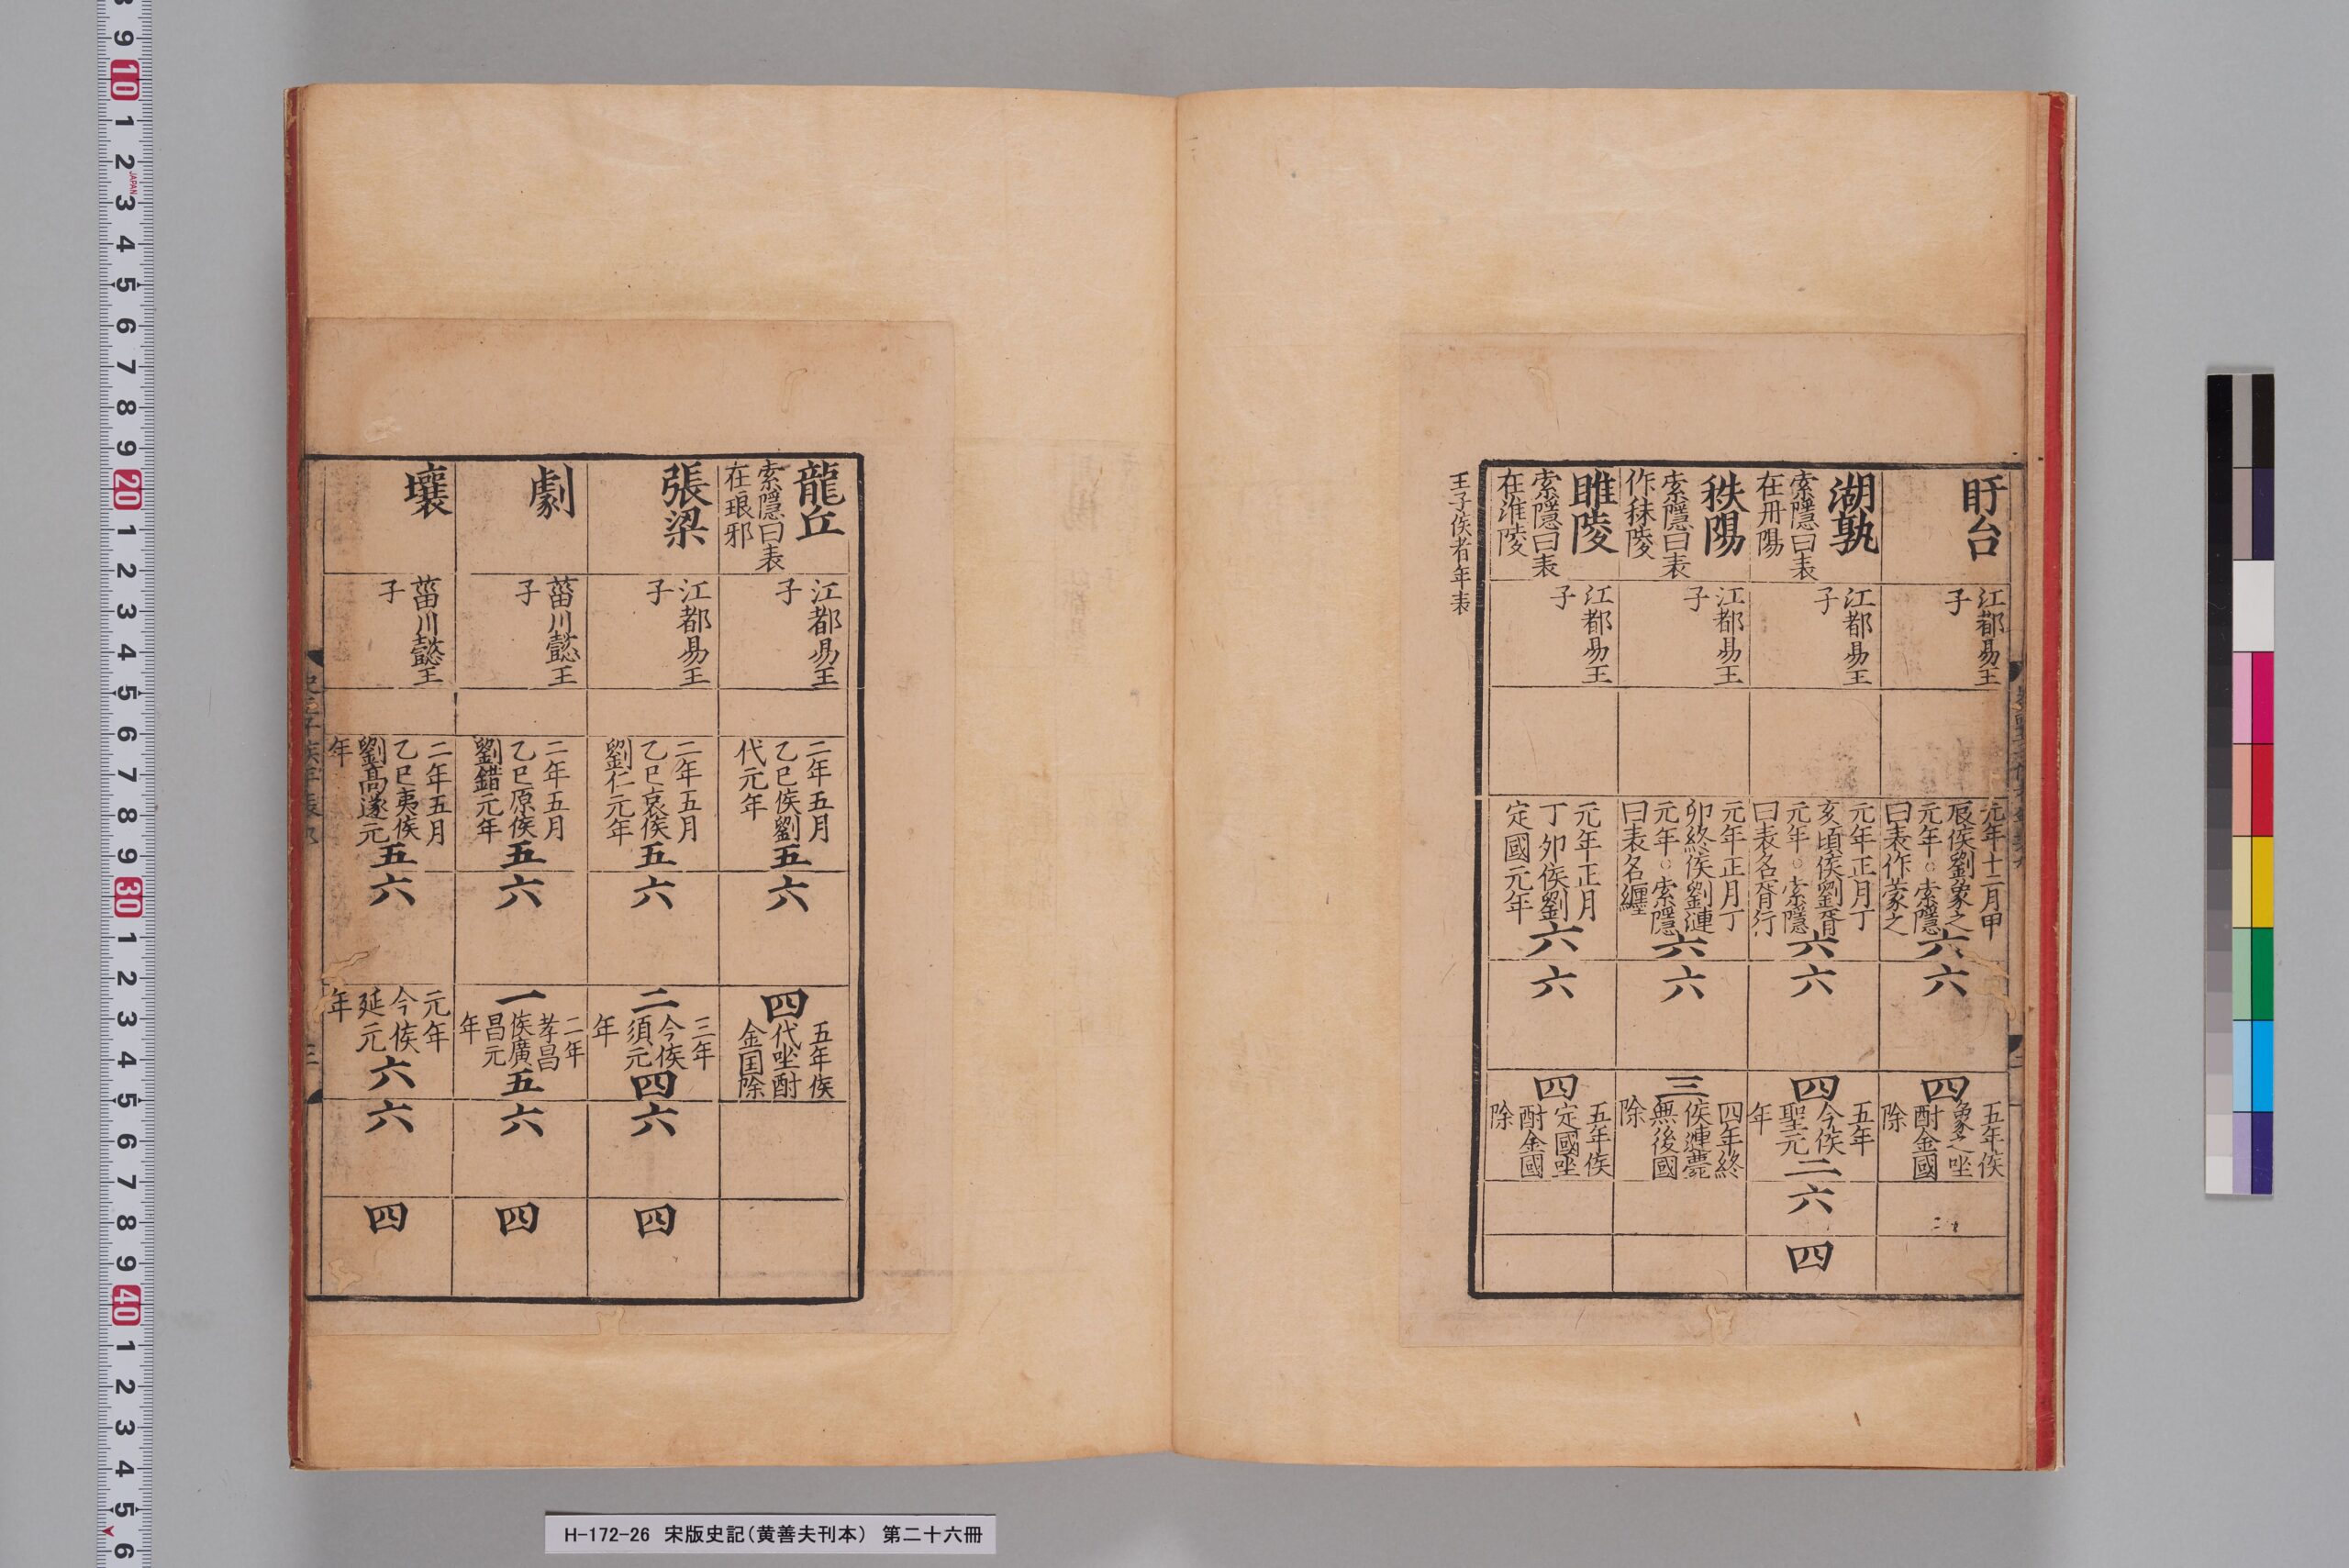 盱台
江都易王
子
元年十二月甲
辰侯劉象之
元年○索隱
曰表作蒙之
六
六
四
五年侯
象之坐
酎金國
除
湖孰
索隱曰表
在丹陽
江都易王
子
元年正月丁
亥頃侯劉胥
元年○索隱
曰表名胥行
六
六
四
五年
今侯
聖元
年
二
六
四
秩陽
索隱曰表
作秣陵
江都易王
子
元年正月丁
卯終侯劉漣
元年○索隱
曰表名纏
六
六
三
四年終
侯漣薨
無後國
除
睢陵
索隱曰表
在淮陵
江都易王
子
元年正月
丁卯侯劉
定國元年
六
六
四
五年侯
定國坐
酎金國
除
王子侯者年表
龍丘
索隱曰表
在琅邪
江都易王
子
二年五月
乙巳侯劉
代元年
五
六
四
五年侯
代坐酎
金国除
張梁
江都易王
子
二年五月
乙巳哀侯
劉仁元年
五
六
二
三年
今侯
須元
年
四
六
四
劇
菑川懿王
子
二年五月
乙巳原侯
劉錯元年
五
六
一
二年
孝昌
侯廣
昌元
年
五
六
四
壤
菑川懿王
子
二年五月
乙巳夷侯
劉高遂元
年
五
六
元年
今侯
延元
年
六
六
四
H-172-26 宋版史記(黄善夫刊本) 第二十六冊
9
10
1
2
JAPAN
3
4
5
6
7
8
9
20
1
2
3
4
5
6
7
8
9
30
1
2
3
4
5
6
7
8
9
40
1
2
3
4
5
6